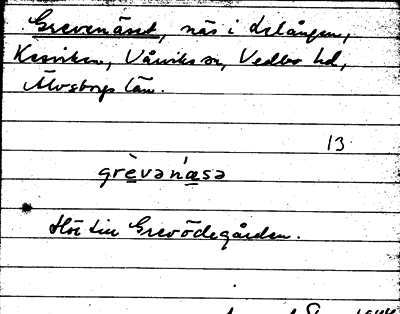 Grevenäset, näs i Lelången,
Kesviken, Vårviks sn, Vedbo hd,
Älvsborgs län.
13
grèvanæsa
Hör till Grevödegården.